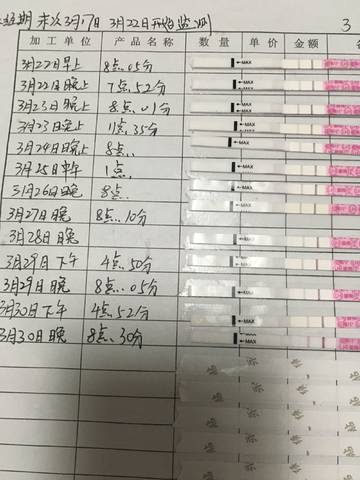 末次3月17日 3月22日开始监测 3
加工单位 产品名称 数量 单价 金额
3月22早上 8点.05分 MAX
3月22日晚上 7点.52分 MAX
3月23日晚上 8点.01分 MAX
3月23日晚上 11点.35分 MAX
3月24日晚上 8点.. MAX
3月25日中午 1点. MAX
3月26日晚 8点. MAX
3月27日晚 8点.10分 MAX
3月28日晚 MAX
3月29日下午 4点.50分 MAX
3月29日晚 8点.05分 MAX
3月30日下午 4点.52分 MAX
3月30日晚 8点.30分 MAX